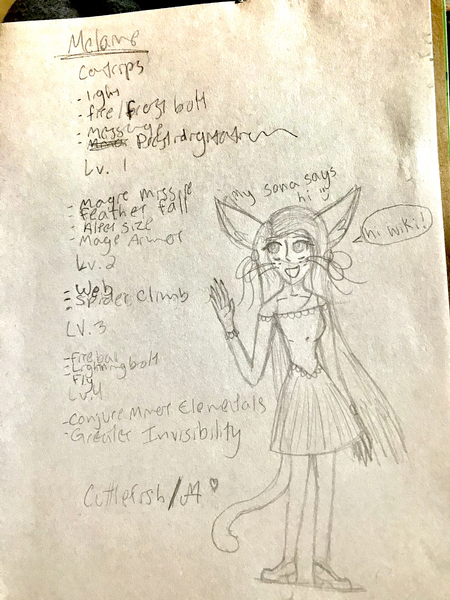 Melarue
Cantrips
- light
- fire/frost bolt
- message
- Prestidigitation
Lv. 1
- magic missile
- feather fall
- Alter size
- Mage Armor
Lv. 2
- Web
- Spider Climb
Lv. 3
- fireball
- Lightning bolt
- Fly
Lv. 4
- Conjure Minor Elementals
- Greater Invisibility
Cuttlefish/A ♡
my sona says
hi :)
hi wiki!